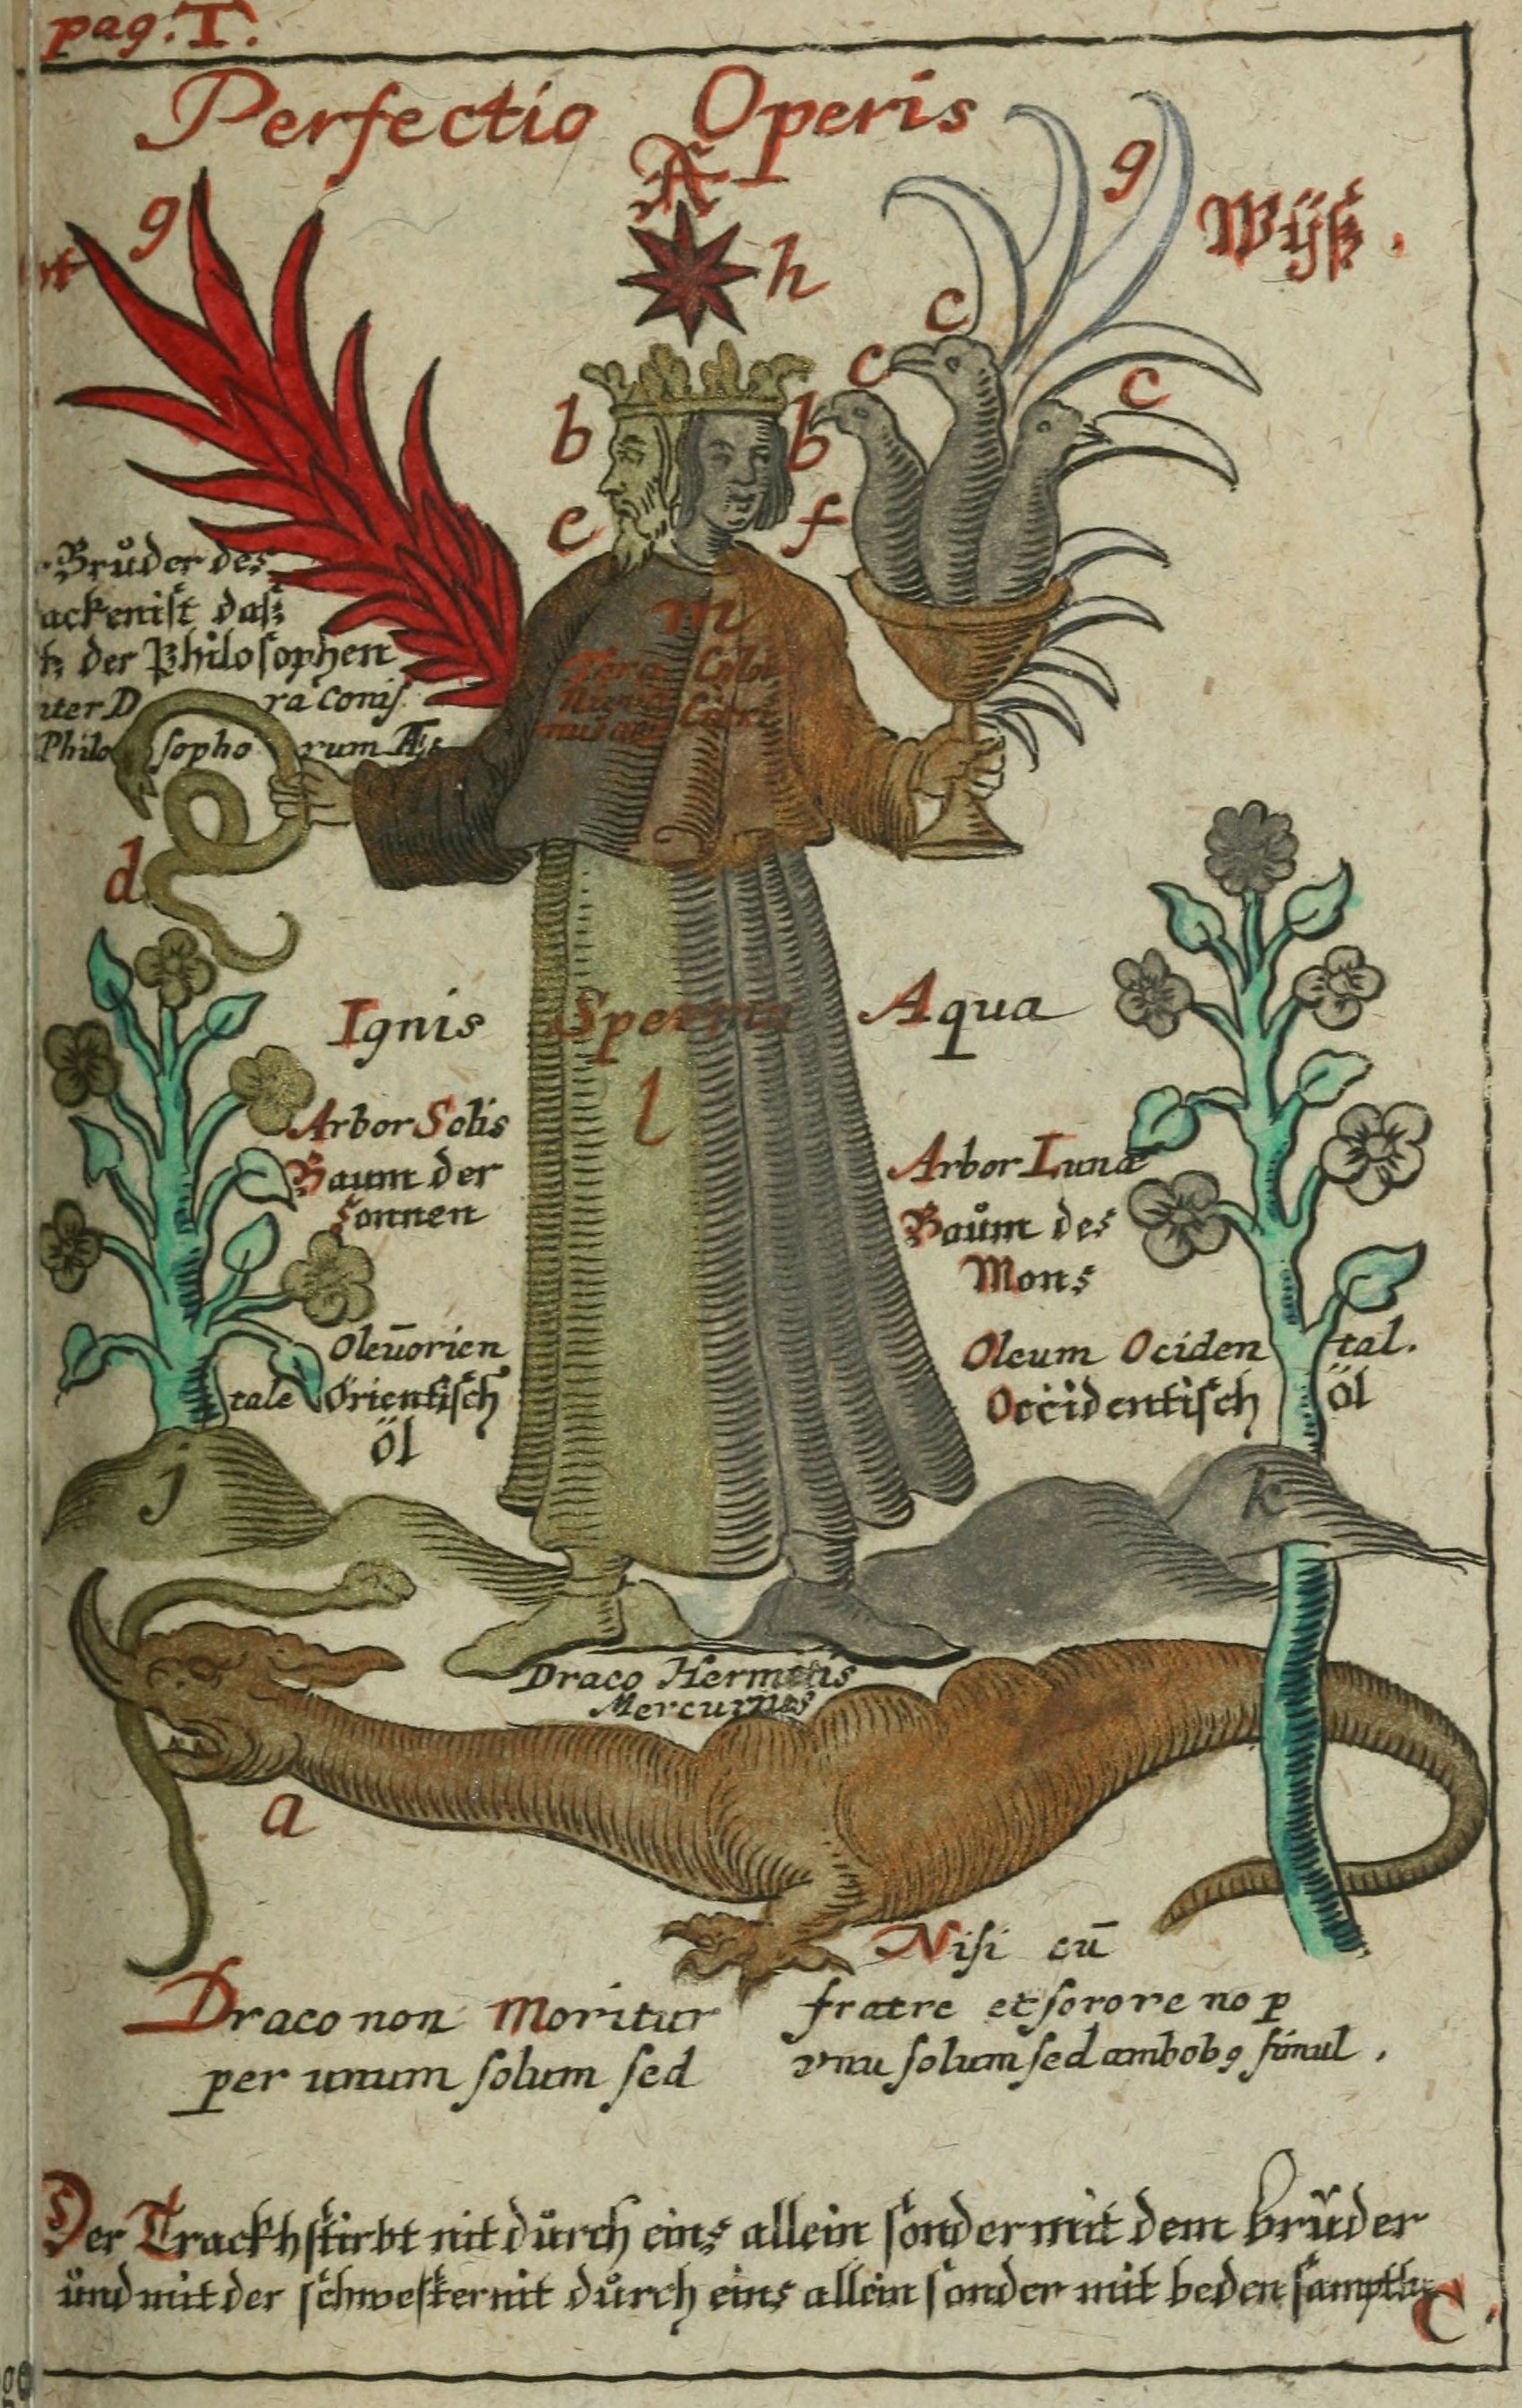 pag. T.
Perfectio Operis
A
g
g
Wÿß.
h
c
c
c
b
b
e
f
Brůder des
ackenist daß
der Philosophen
iter D ra conis
Philo sopho rum Æs
m
Tera
Color
Nigra
Citri
nus
d
Ignis
Sperma
Aqua
l
Arbor Solis
Baum der
Sonnen
Arbor Lunæ
Baům des
Mons
Oleū orien
tale Orientisch
öl
Oleum Ociden tal.
Occidentisch öl
j
k
Draco Hermetis
Mercurius
a
Nisi cū
Draco non Moritur fratre et sorore no p
per unum solum sed vnu solum sed ambobꝰ simul.
Der Trackh stirbt nit důrch eins allein sonder mit dem brůder
ůnd mit der schwester nit důrch eins allein sonder mit beden samptli
C.